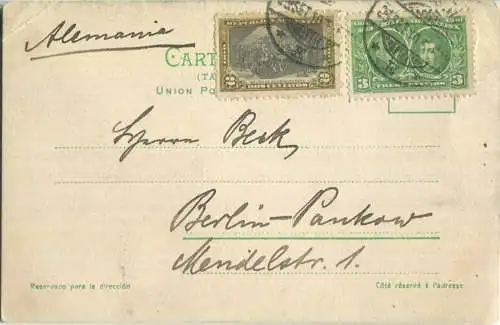 Alemania
CART
(TA
UNION PO
2 DOS CENTAVOS 2
3 TRES CENTAVOS 3
Herrn Beck
Berlin-Pankow
Mendelstr. 1.
Reservado para la dirección
Côté réservé à l'adresse